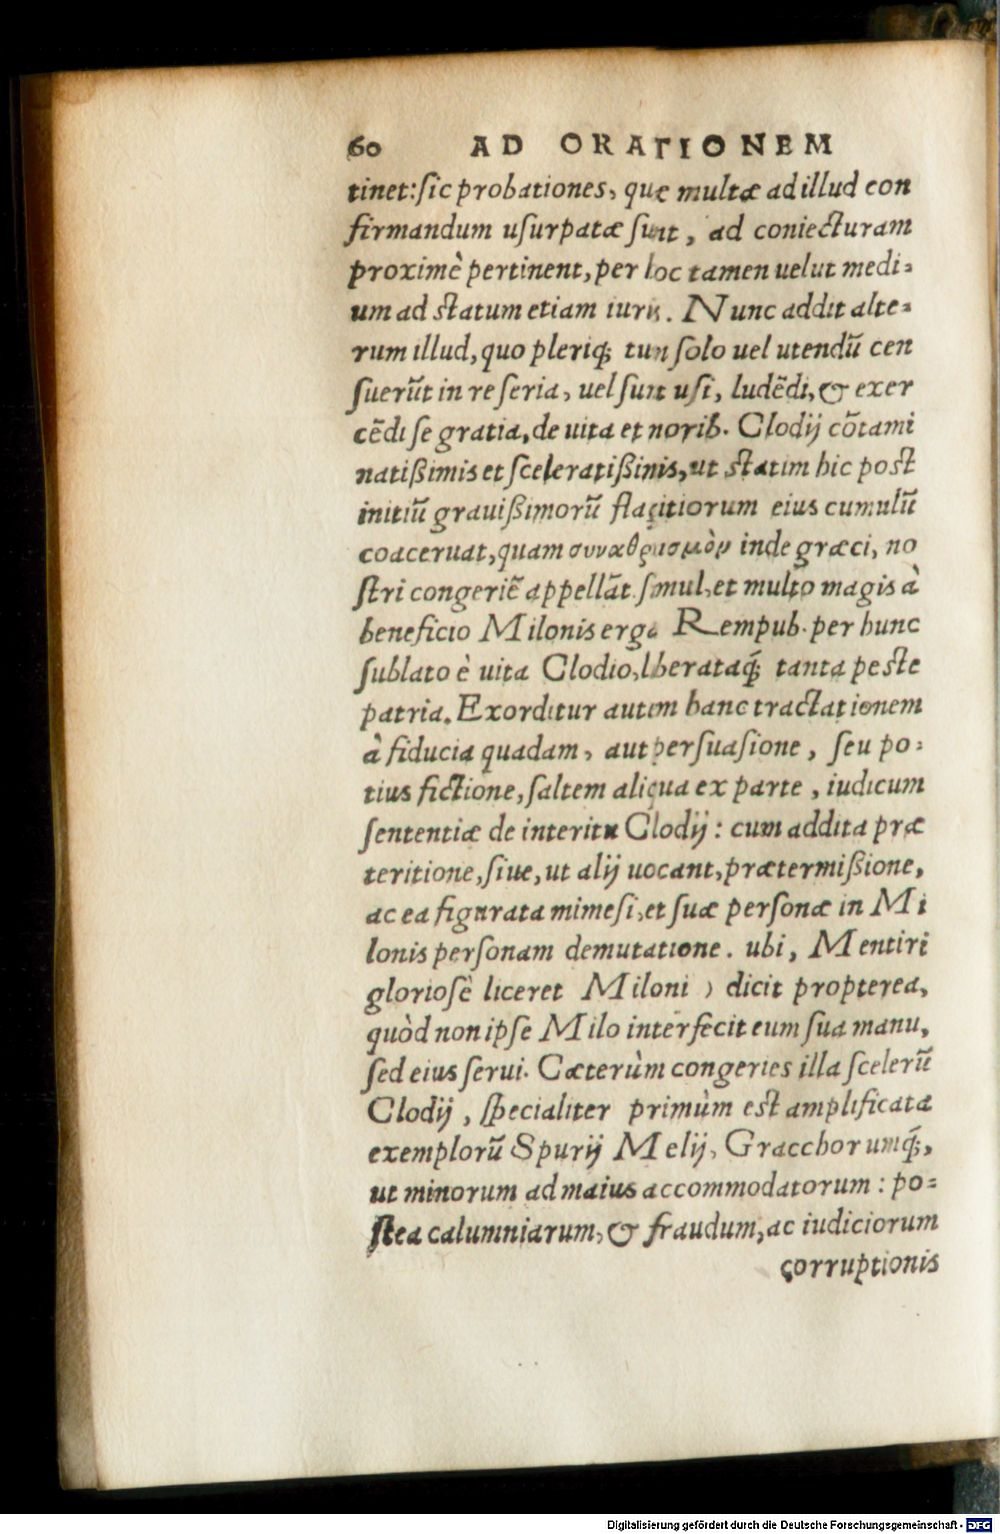 60 AD ORATIONEM
tinet: sic probationes, quæ multæ ad illud con
firmandum usurpatæ sunt, ad coniecturam
proximè pertinent, per hoc tamen uelut medi-
um ad statum etiam iuris. Nunc addit alte-
rum illud, quo pleriq; tum solo uel utendū cen
suerūt in re seria, uel sunt usi, ludēdi, & exer
cēdi se gratia, de uita et morib. Clodij cōtami
natißimis et sceleratißimis, ut statim hic post
initiū grauißimorū flagitiorum eius cumulū
coaceruat, quam συναθρισμὸν inde græci, no
stri congeriē appellāt. simul, et multo magis à
beneficio Milonis erga Rempub. per hunc
sublato è uita Clodio, liberataq́; tanta peste
patria. Exorditur autem hanc tractationem
à fiducia quadam, aut persuasione, seu po-
tius fictione, saltem aliqua ex parte, iudicum
sententiæ de interitu Clodij: cum addita præ
teritione, siue, ut alij uocant, prætermißione,
ac ea figurata mimesi, et suæ personæ in Mi
lonis personam demutatione. ubi, Mentiri
gloriosè liceret Miloni ) dicit propterea,
quòd non ipse Milo interfecit eum sua manu,
sed eius serui. Cæterùm congeries illa scelerū
Clodij, specialiter primùm est amplificata
exemplorū Spurij Melij, Gracchorumq́;,
ut minorum ad maius accommodatorum: po-
stea calumniarum, & fraudum, ac iudiciorum
corruptionis
Digitalisierung gefördert durch die Deutsche Forschungsgemeinschaft - DFG